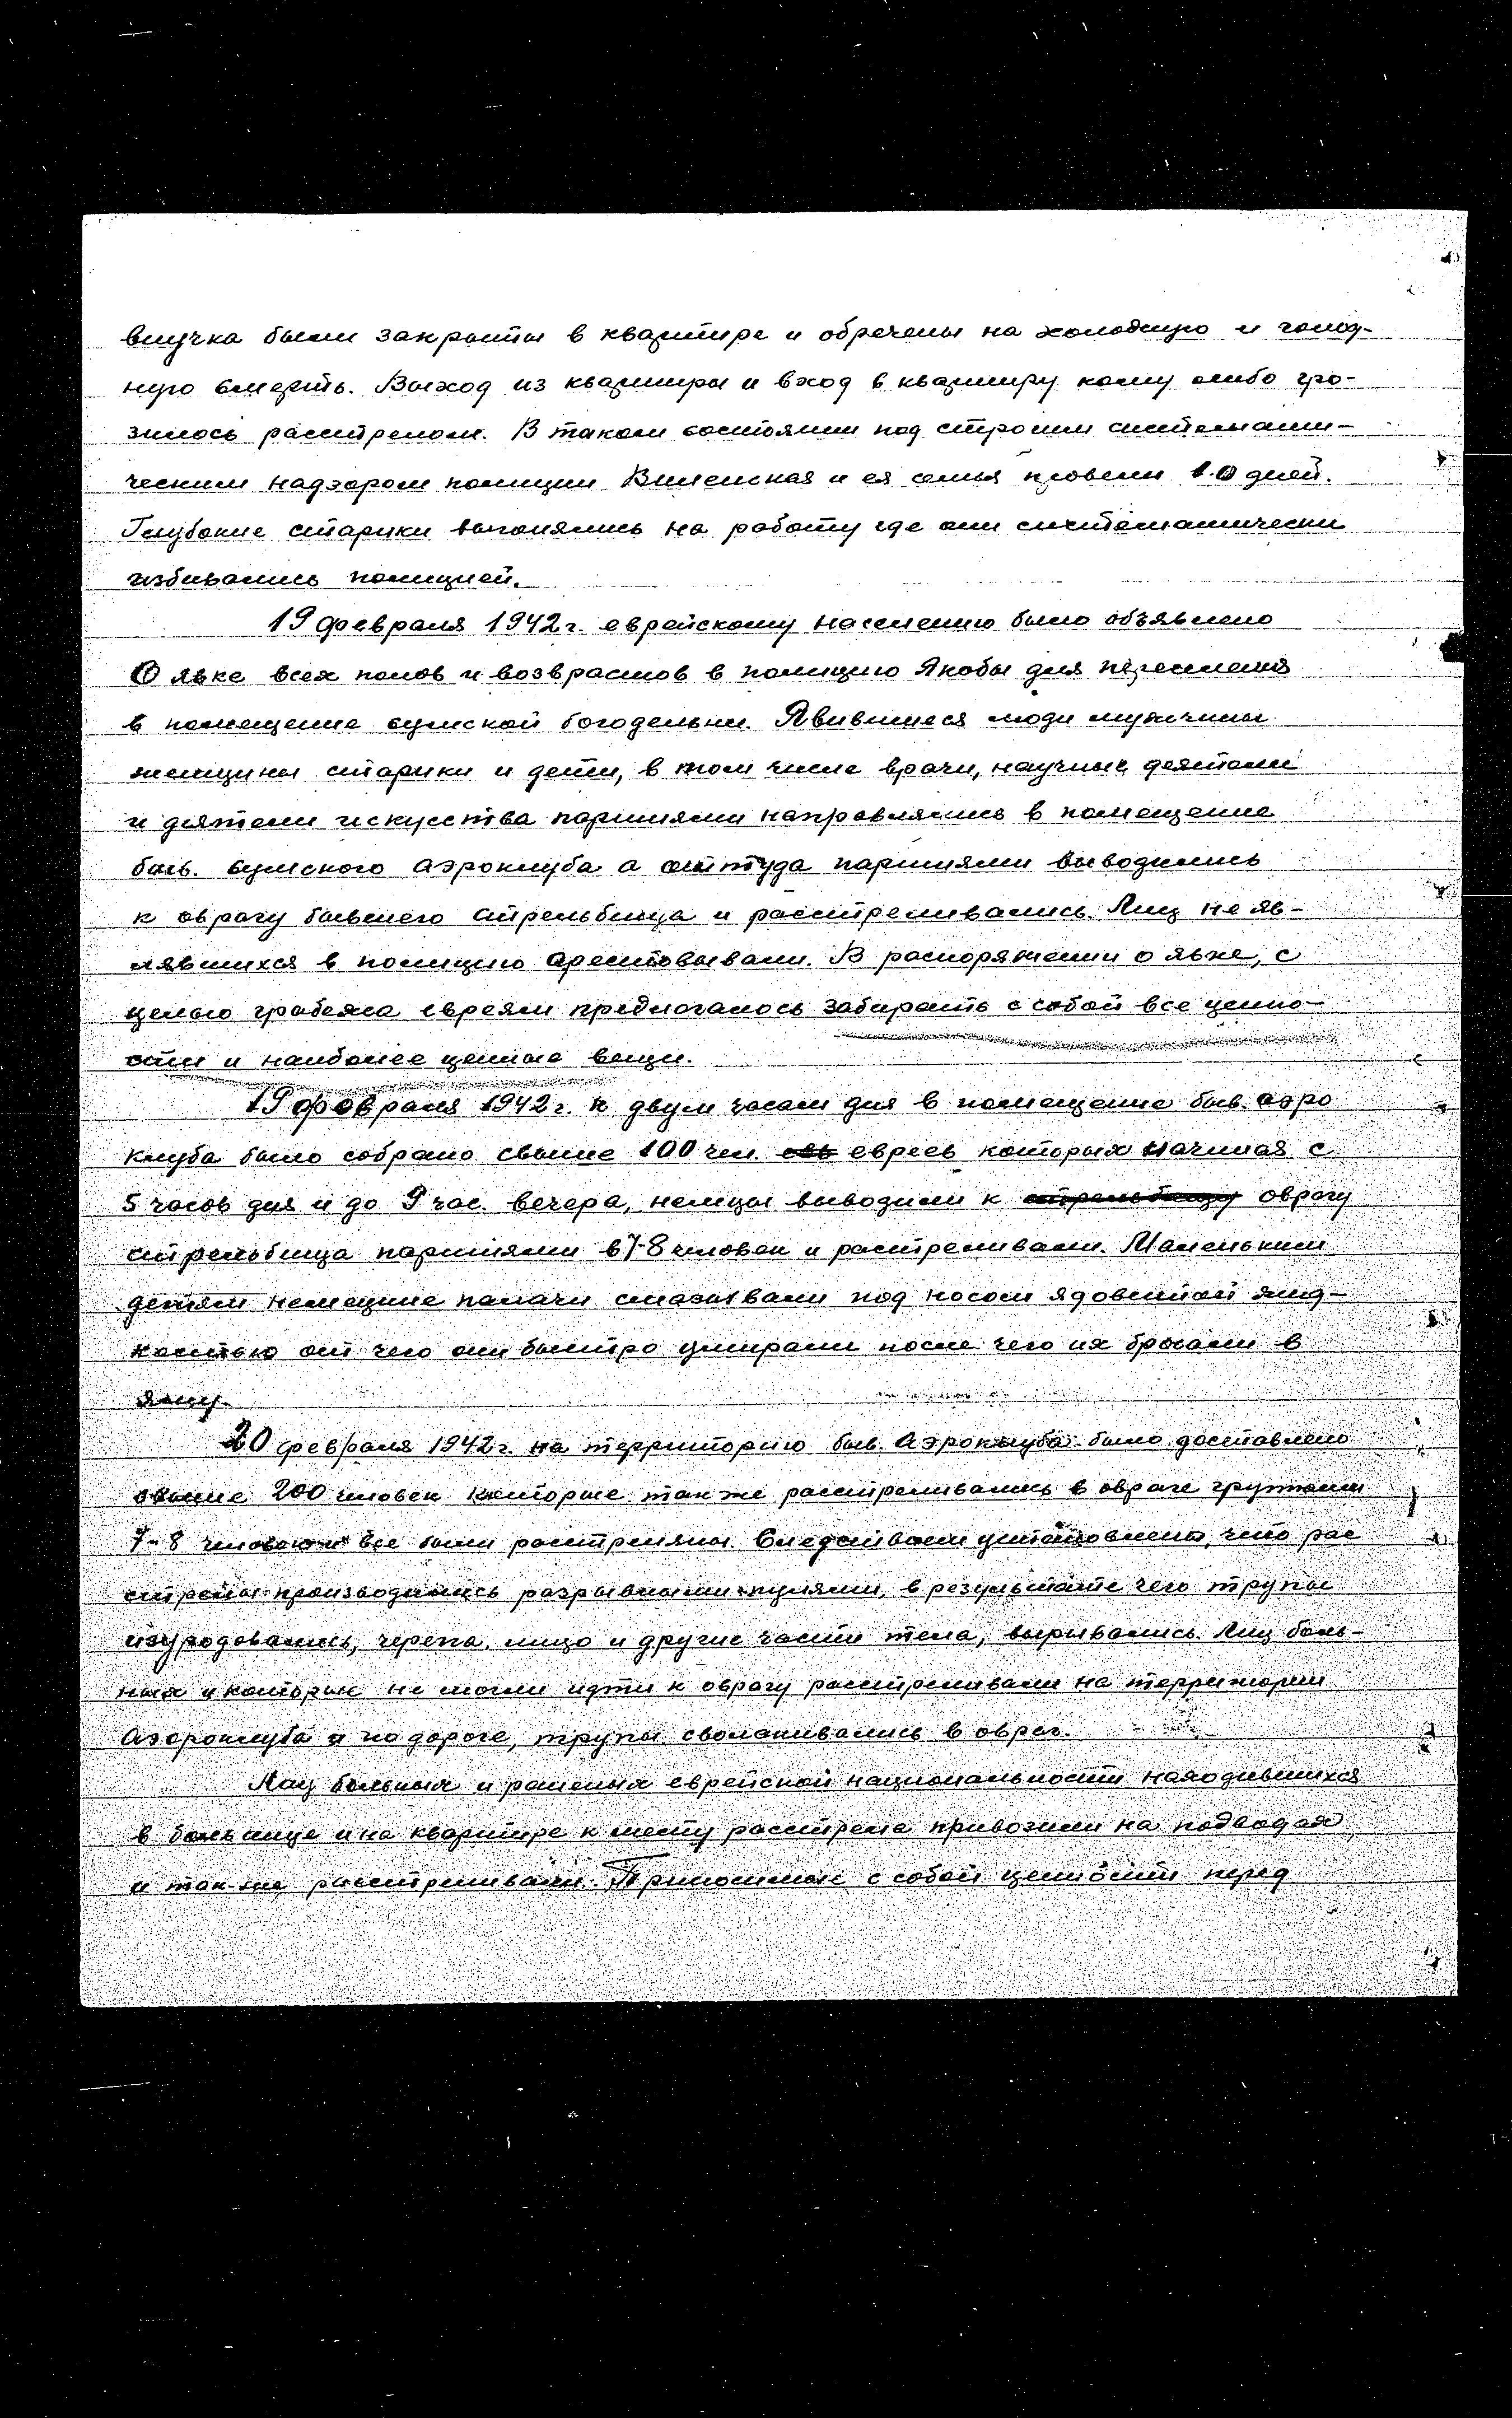 внучка были закрыты в квартире и обречены на холодную и голод-
ную смерть. Выход из квартиры и вход в квартиру кому либо гро-
зилось расстрелом. В таком состоянии под строгим системати-
ческим надзором полиции Виленская и ея семья провели 10 дней.
Глубокие старики выгонялись на работу где они систематически
избивались полицией.
19 февраля 1942 г. еврейскому населению было объявлено
О явке всех полов и возврастов в полицию Якобы для переселения
в помещение сумской богодельни. Явившиеся люди мужчины
женщины старики и дети, в том числе врачи, научные деятели
и деятели искусства партиями направлялись в помещение
быв. сумского Аэроклуба а оттуда партиями выводились
к оврагу бывшего стрельбища и расстреливались. Лиц не яв-
лявшихся в полицию арестовывали. В распоряжении о явке, с
целью грабежа евреям предлагалось забирать с собой все ценно-
сти и наиболее ценные вещи.
19 февраля 1942 г. к двум часам дня в помещение быв. аэро
клуба было собрано свыше 100 чел. евреев которых начиная с
5 часов дня и до 9 час. вечера, немцы выводили к стрельбищу оврагу
стрельбища партиями в 7-8 человек и расстреливали. Маленьким
детям немецкие палачи смазывали под носом ядовитой жид-
костью от чего они быстро умирали после чего их бросали в
яму.
20 февраля 1942 г. на территорию быв. Аэроклуба было доставлено
свыше 200 человек которые также расстреливались в овраге группами
7-8 человек и все были расстреляны. Следствием установлено, что рас
стрелы производились разрывными пулями, в результате чего трупы
изуродовались, черепа, лицо и другие части тела, вырывались. Лиц боль-
ных и которые не могли идти к оврагу расстреливали на территории
Аэороклуба и по дороге, трупы сволакивались в овраг.
Лиц больных и раненых еврейской национальности находившихся
в больнице и на квартире к месту расстрела привозили на подводах
и так-же расстреливали. Приносимые с собой ценности перед